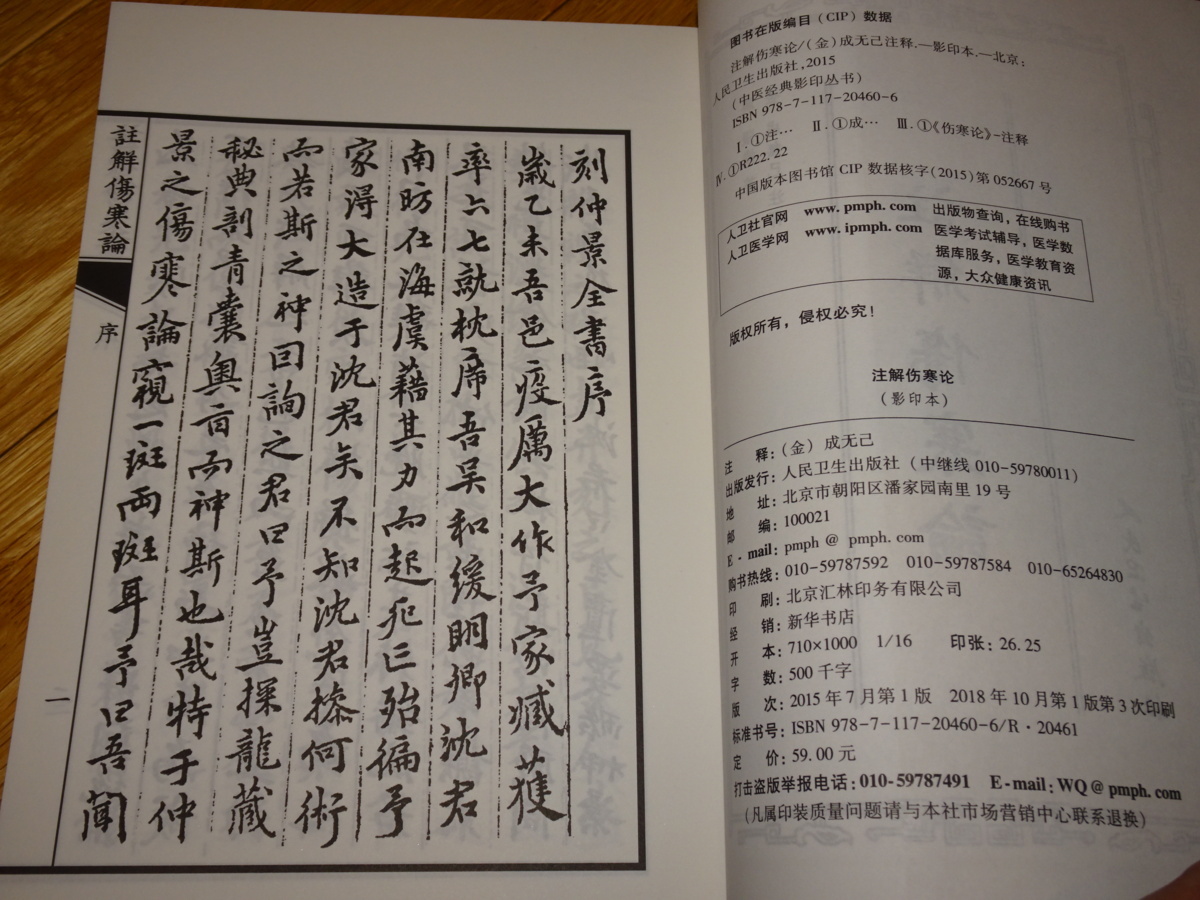 註解傷寒論
序
一
刻仲景全書序
歲乙未吾邑疫厲大作予家臧獲
率六七就枕席吾吳和緩明卿沈君
南昉仕海虞藉其力而起死亡殆徧予
家得大造于沈君矣不知沈君操何術
而若斯之神因詢之君曰予豈探龍藏
秘典剖青囊奧旨而神斯也哉特于仲
景之傷寒論窺一斑兩斑耳予曰吾聞
图书在版编目(CIP)数据
注解伤寒论/(金)成无己注释.—影印本.—北京:
人民卫生出版社,2015
(中医经典影印丛书)
ISBN 978-7-117-20460-6
Ⅰ.①注… Ⅱ.①成… Ⅲ.①《伤寒论》-注释
Ⅳ.①R222.22
中国版本图书馆CIP数据核字(2015)第052667号
人卫社官网 www.pmph.com 出版物查询,在线购书
人卫医学网 www.ipmph.com 医学考试辅导,医学数
据库服务,医学教育资
源,大众健康资讯
版权所有,侵权必究!
注解伤寒论
(影印本)
注 释:(金)成无己
出版发行:人民卫生出版社(中继线 010-59780011)
地 址:北京市朝阳区潘家园南里19号
邮 编:100021
E-mail:pmph @ pmph.com
购书热线:010-59787592 010-59787584 010-65264830
印 刷:北京汇林印务有限公司
经 销:新华书店
开 本:710×1000 1/16 印张:26.25
字 数:500千字
版 次:2015年7月第1版 2018年10月第1版第3次印刷
标准书号:ISBN 978-7-117-20460-6/R·20461
定 价:59.00元
打击盗版举报电话:010-59787491 E-mail:WQ @ pmph.com
(凡属印装质量问题请与本社市场营销中心联系退换)